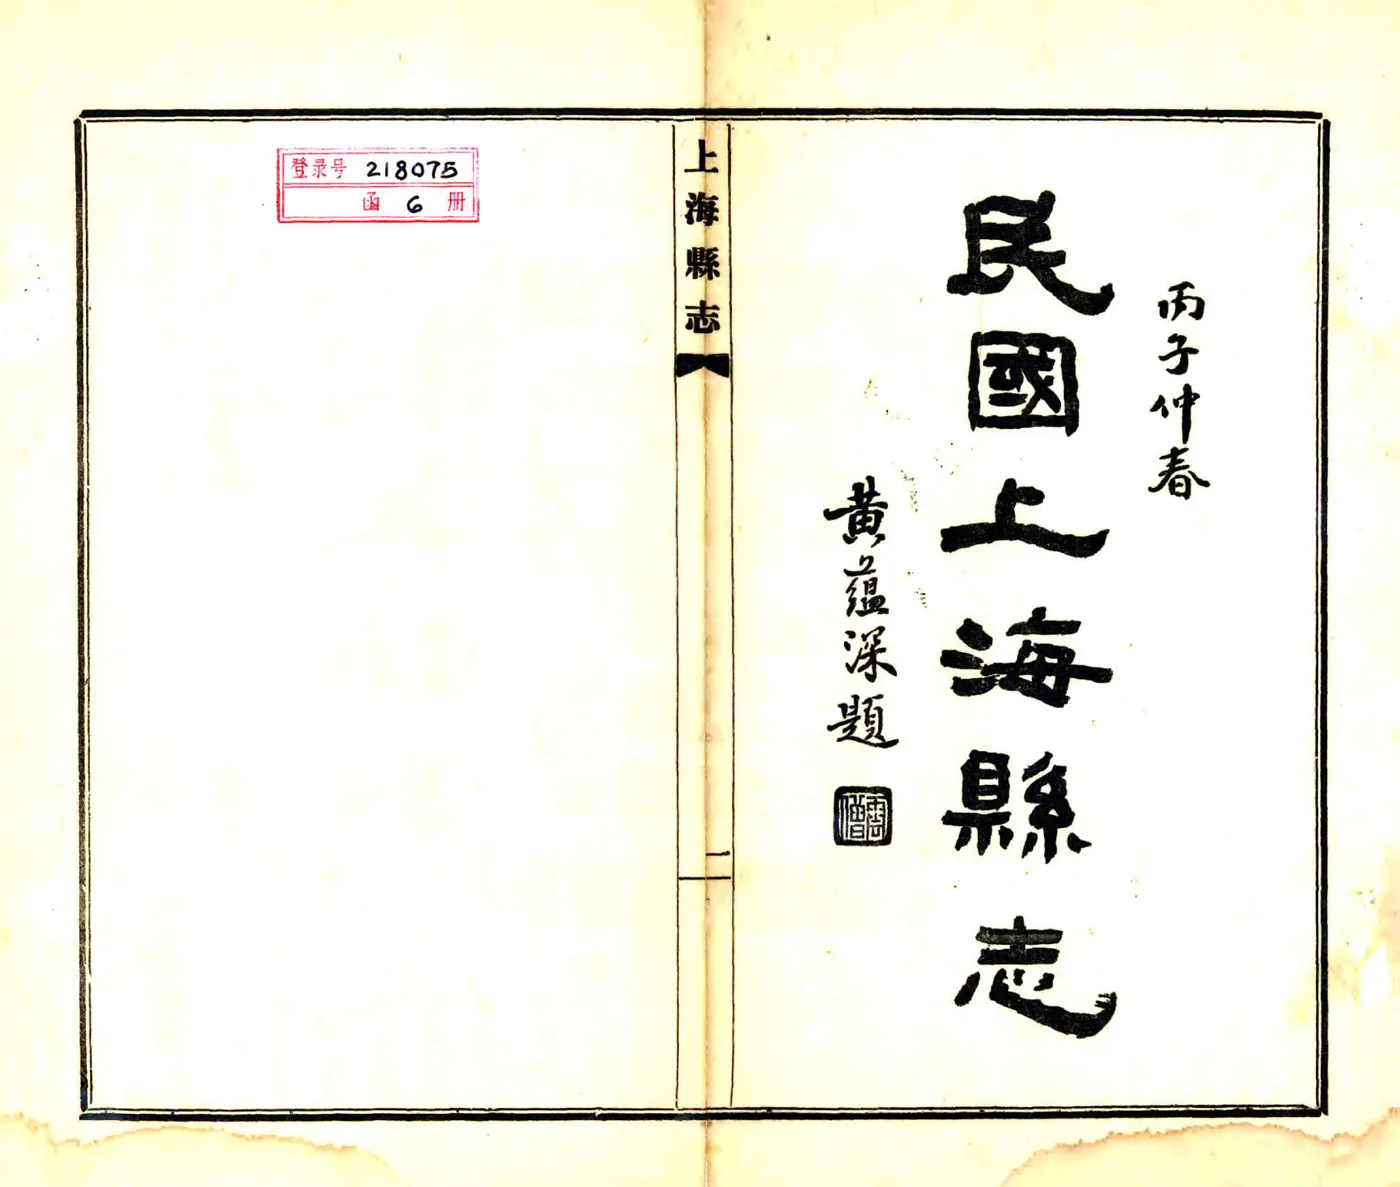 丙子仲春
民國上海縣志
黄蘊深題
上海縣志
一
登录号 218075
函 6 册